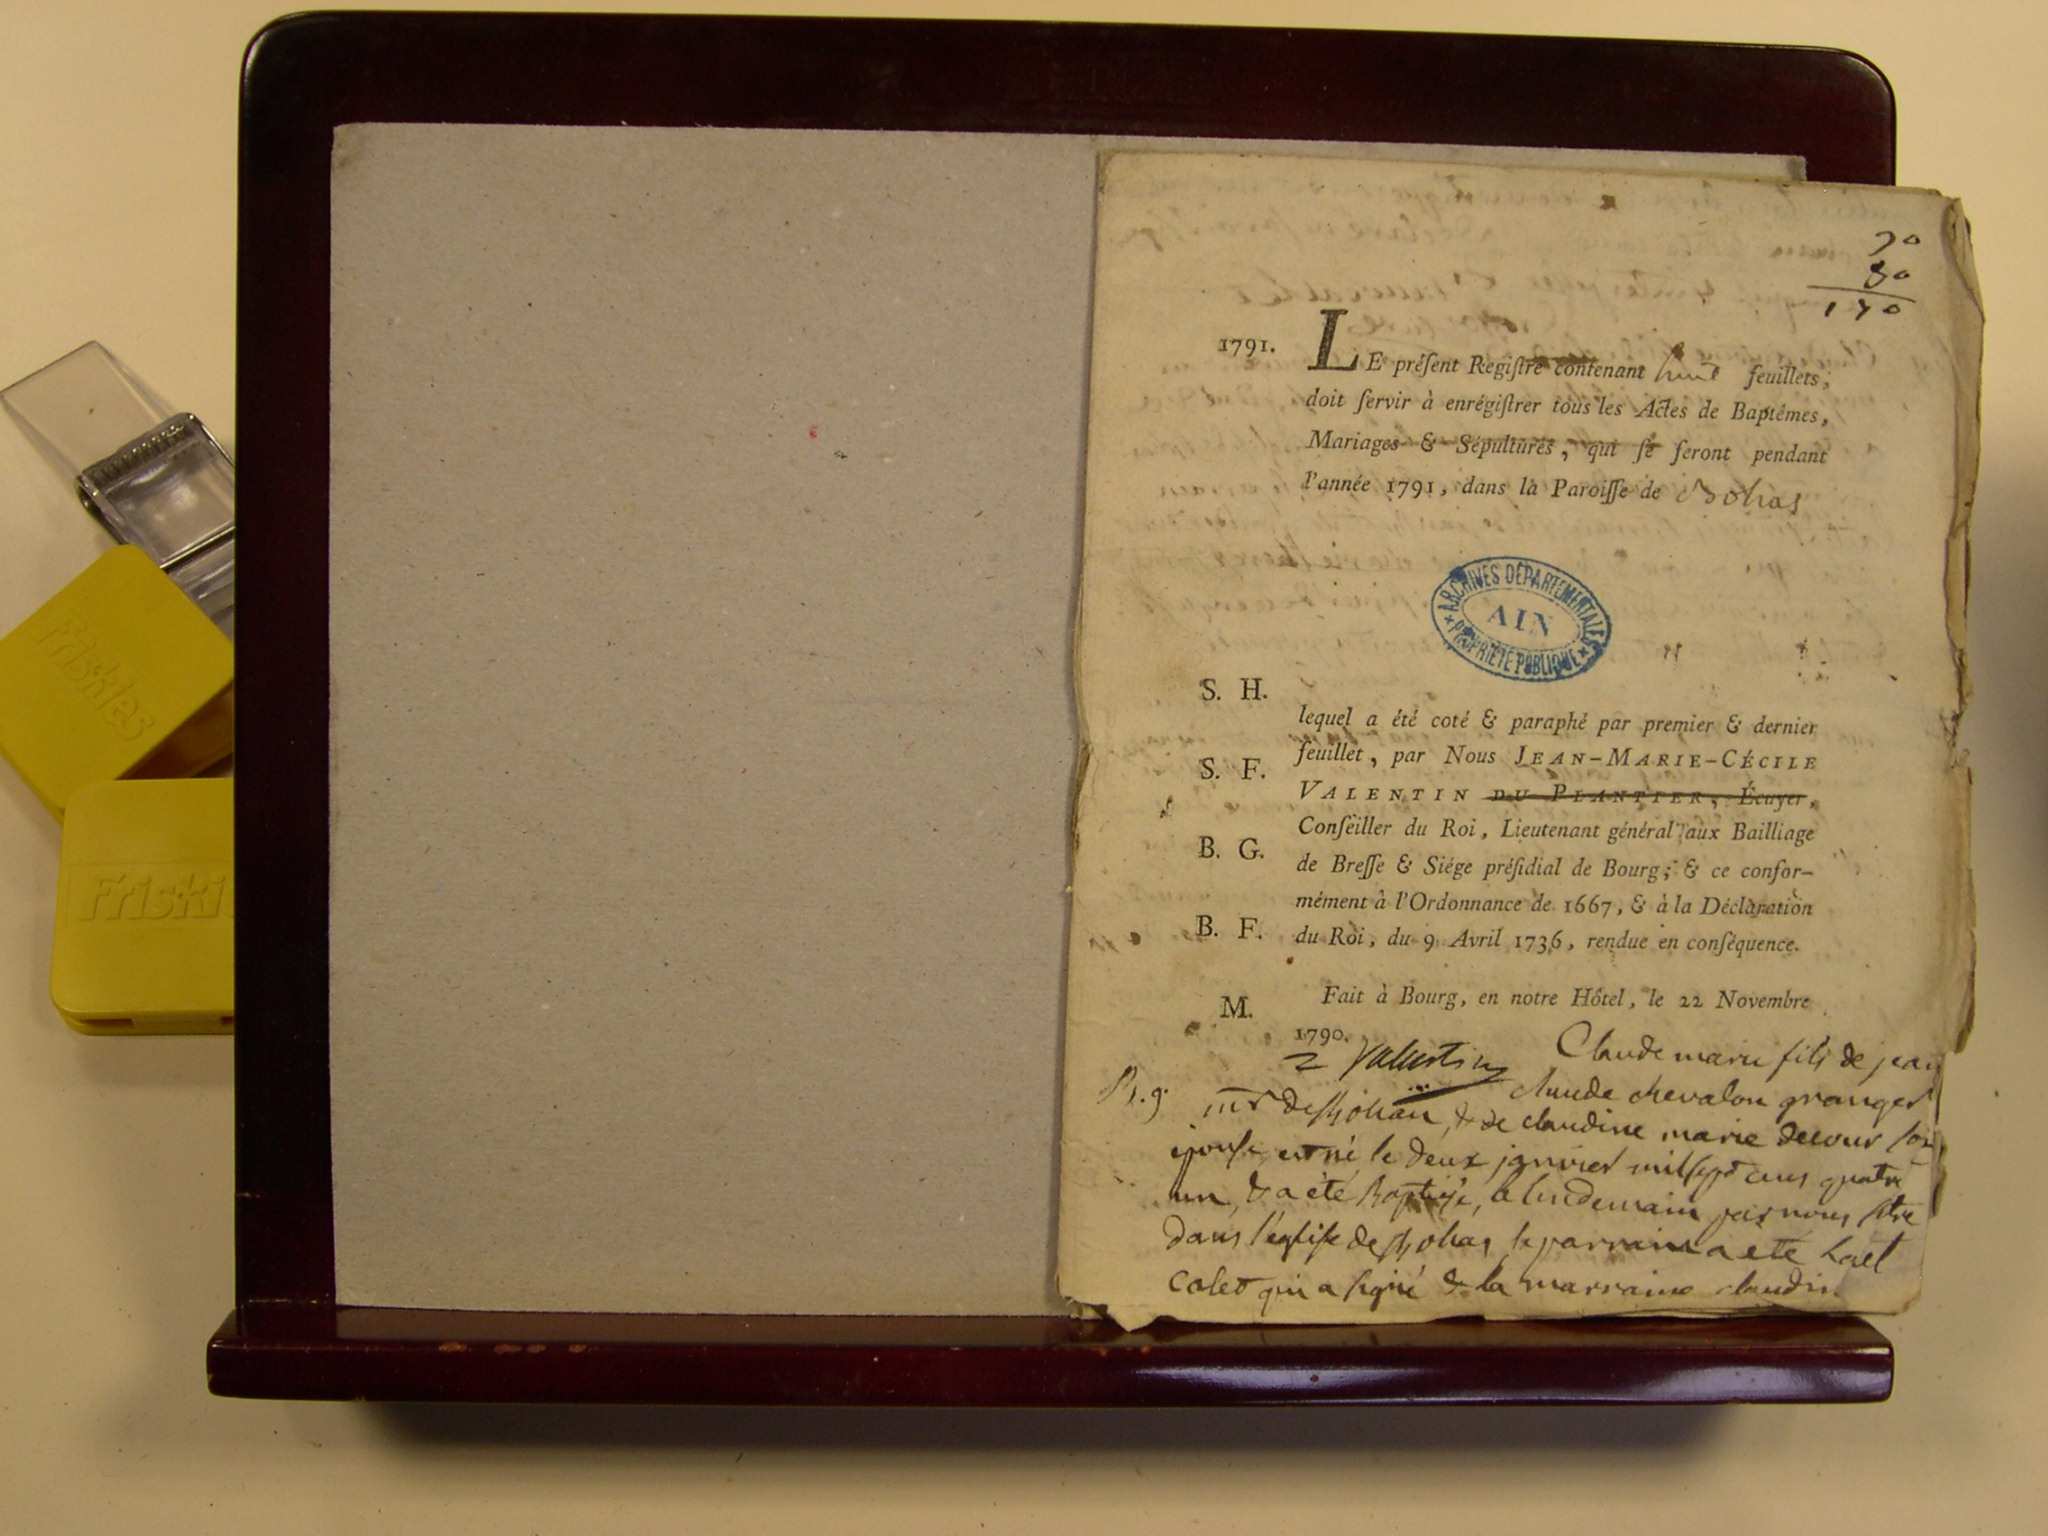 90
80
170
1791. LE préſent Regiſtre contenant huit feuillets;
doit ſervir à enrégiſtrer tous les Actes de Baptêmes,
Mariages & Sépultures, qui ſe feront pendant
l'année 1791, dans la Paroiſſe de Bohas
ARCHIVES DÉPARTEMENTALES
AIN
PROPRIÉTÉ PUBLIQUE
S. H.
lequel a été coté & paraphé par premier & dernier
feuillet, par Nous JEAN-MARIE-CÉCILE
S. F.
VALENTIN DU PLANTIER, Écuyer,
Conſeiller du Roi, Lieutenant général aux Bailliage
B. G.
de Breſſe & Siége préſidial de Bourg; & ce confor-
mément à l'Ordonnance de 1667, & à la Déclaration
B. F.
du Roi, du 9 Avril 1736, rendue en conſéquence.
M.
Fait à Bourg, en notre Hôtel, le 22 Novembre
1790.
Valentin
Claude marie fils de jean
B. g. claude chevalon granger
mr de Bohan, & de claudine marie decour son
epouse, est né le deux janvier mil sept cens quatre
un, & a été Baptisé, le lendemain par nous
dans l'église de Bohas le parrain a ete
colet qui a signé & la marraine claudin
Friskies
Friski